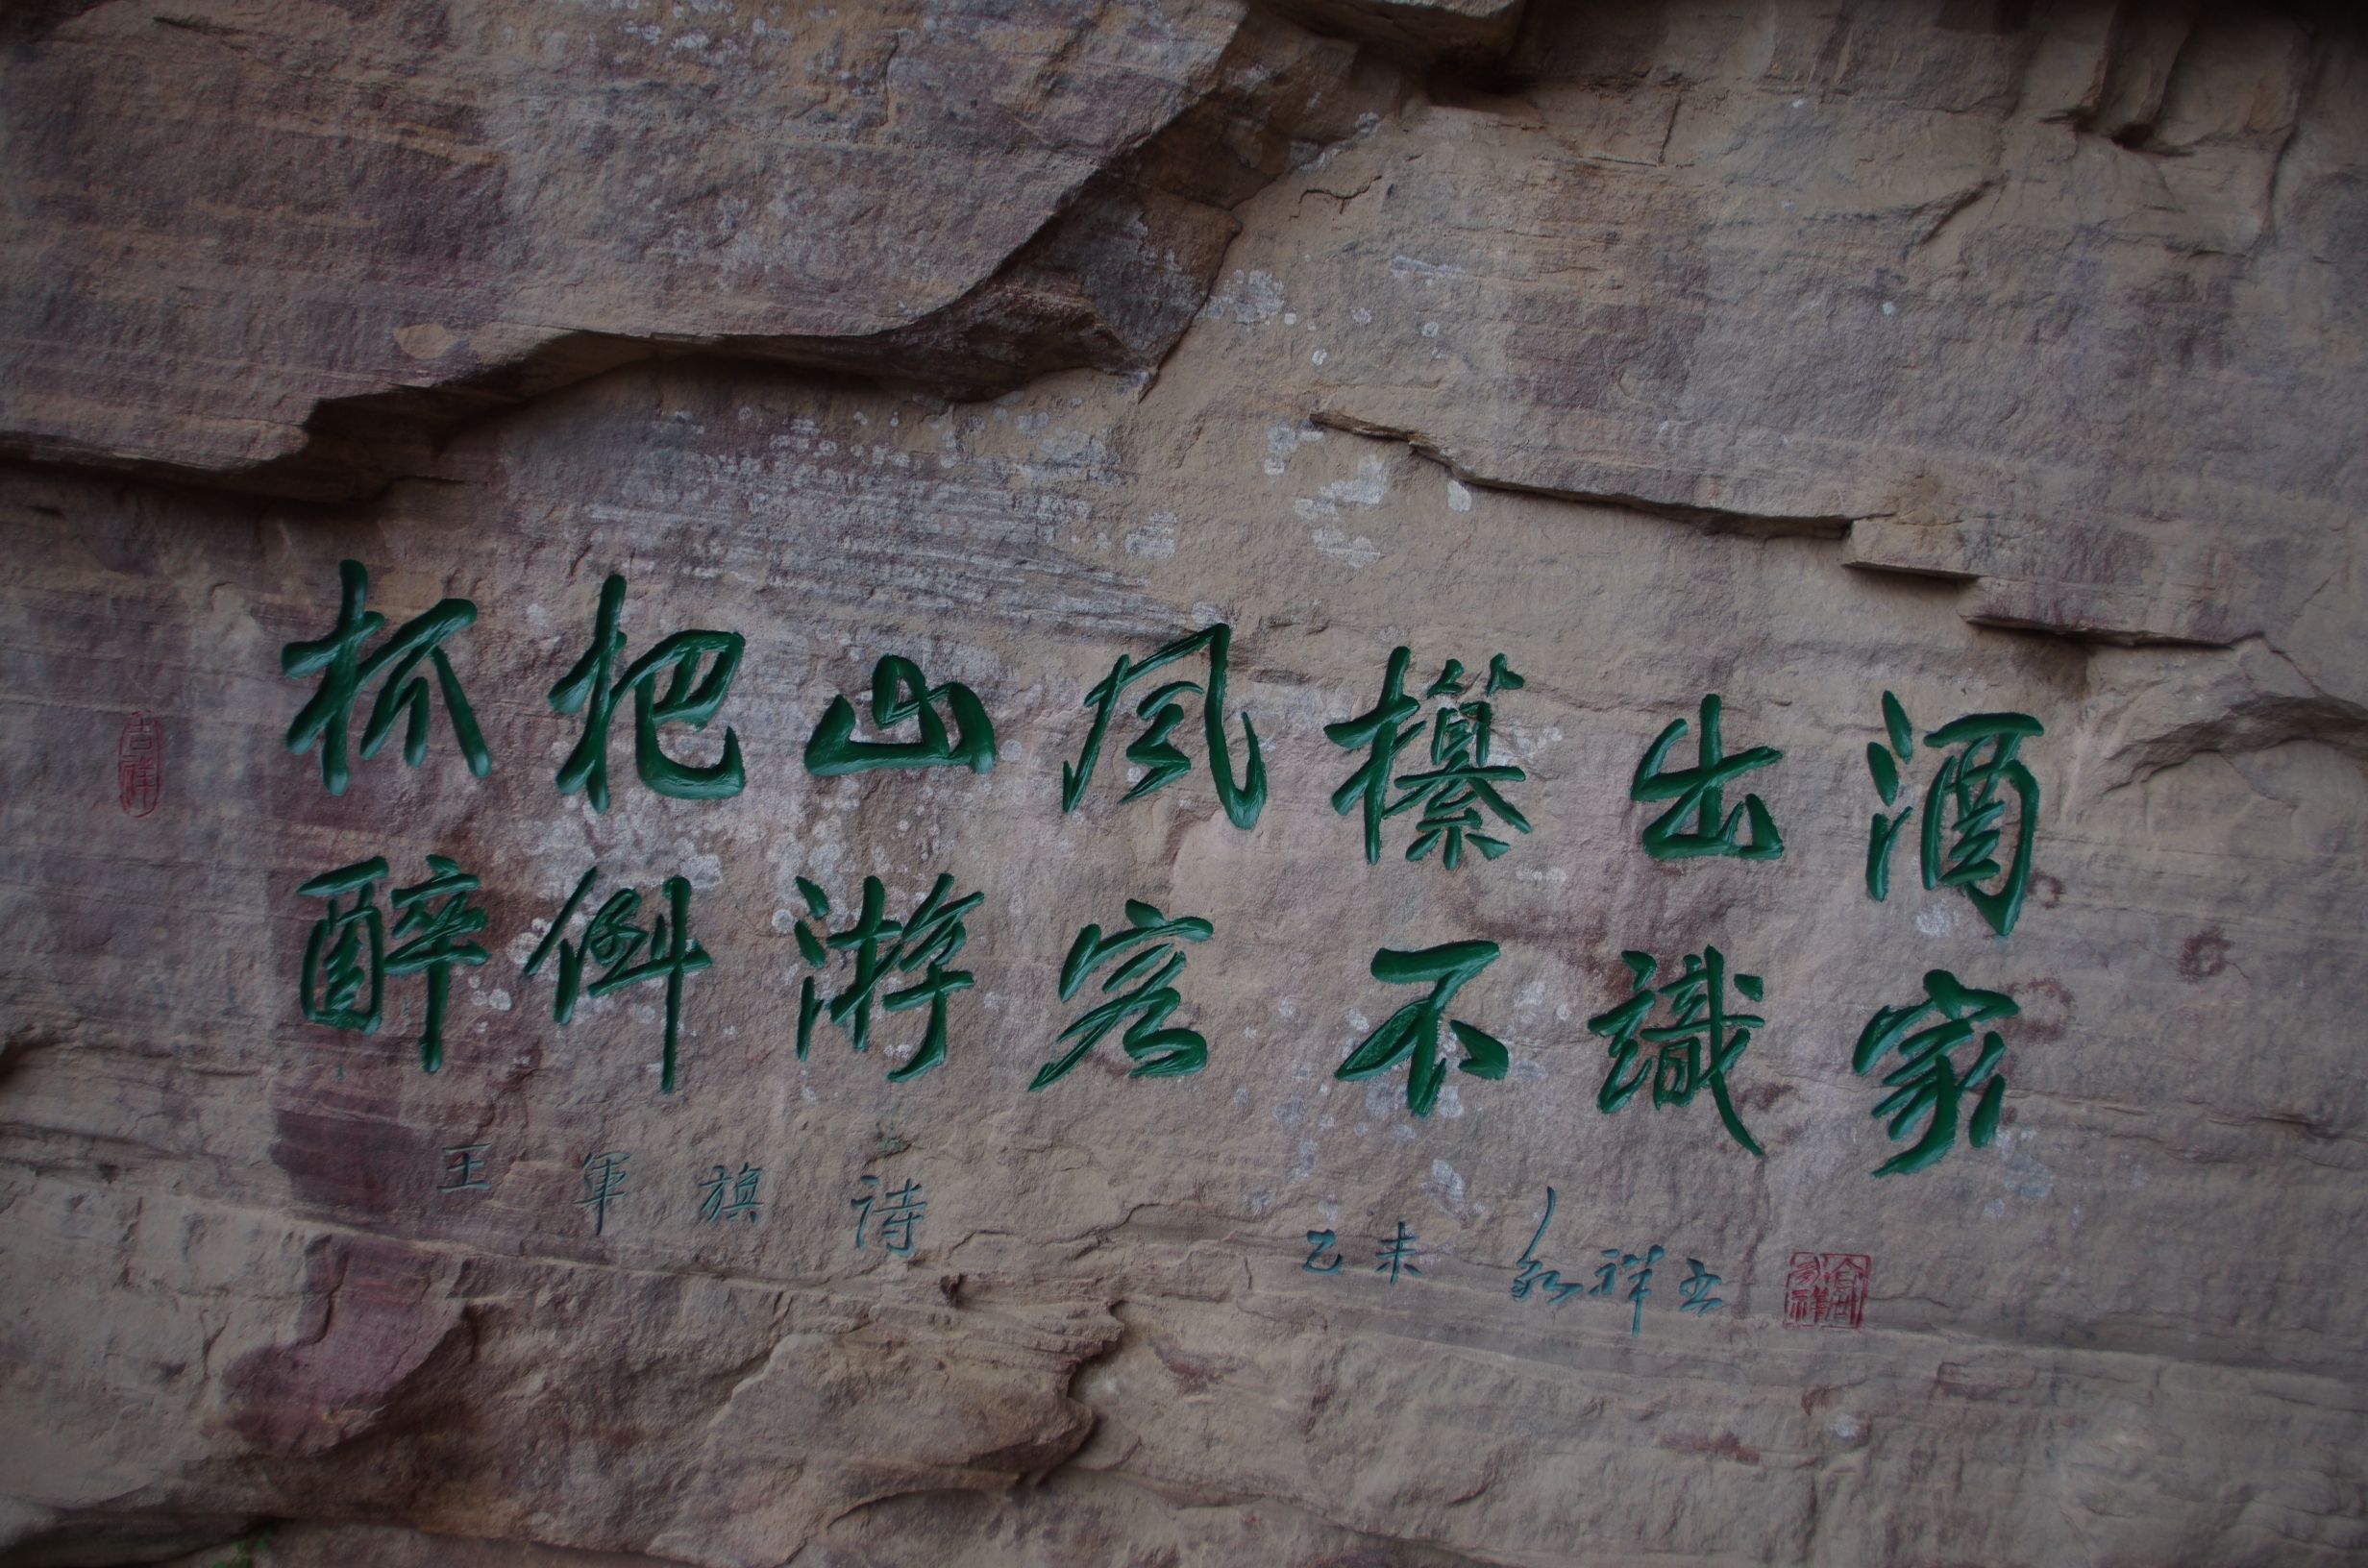 抓把山风攥出酒
醉倒游客不識家
王軍旗诗
乙未 永祥书
吉祥